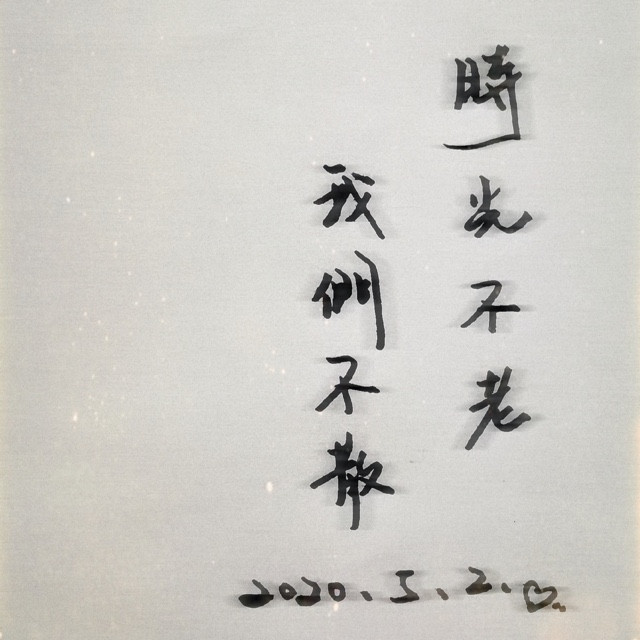 時光不老
我們不散
2020.5.2.♡.